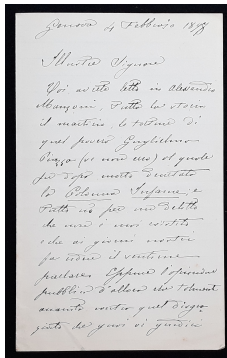 Genova 4 Febbraio 1897
Illustre Signore
Voi avrete letto in Alessandro
Manzoni, tutta la storia
il martirio, le torture di
quel povero Guglielmo
Piazza (se non erro) al quale
fu dopo morto decretato
la Colonna Infame, e
tutto ciò per un delitto
che non è mai esistito
e che ai giorni nostri
fa ridere il sentirne
parlare. Eppure l'opinione
pubblica d'allora era talmente
contro quel disgra-
ziato che quasi i giudici